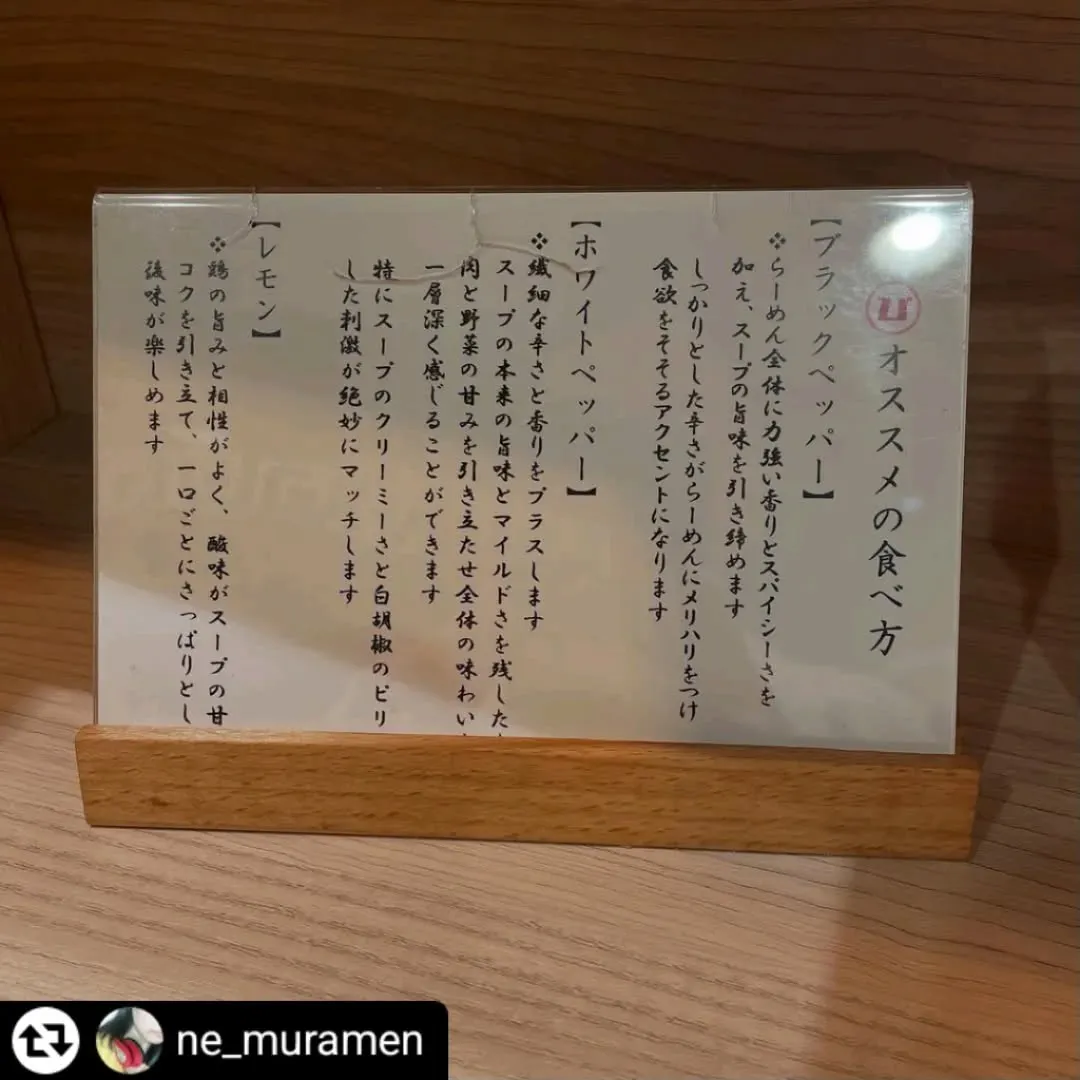 オススメの食べ方
【ブラックペッパー】
❖らーめん全体に力強い香りとスパイシーさを
加え、スープの旨味を引き締めます
しっかりとした辛さがらーめんにメリハリをつけ
食欲をそそるアクセントになります
【ホワイトペッパー】
❖繊細な辛さと香りをプラスします
スープの本来の旨味とマイルドさを残した
肉と野菜の甘みを引き立たせ全体の味わい
一層深く感じることができます
特にスープのクリーミーさと白胡椒のピリ
した刺激が絶妙にマッチします
【レモン】
❖鶏の旨みと相性がよく、酸味がスープの甘
コクを引き立て、一口ごとにさっぱりとし
後味が楽しめます
ne_muramen